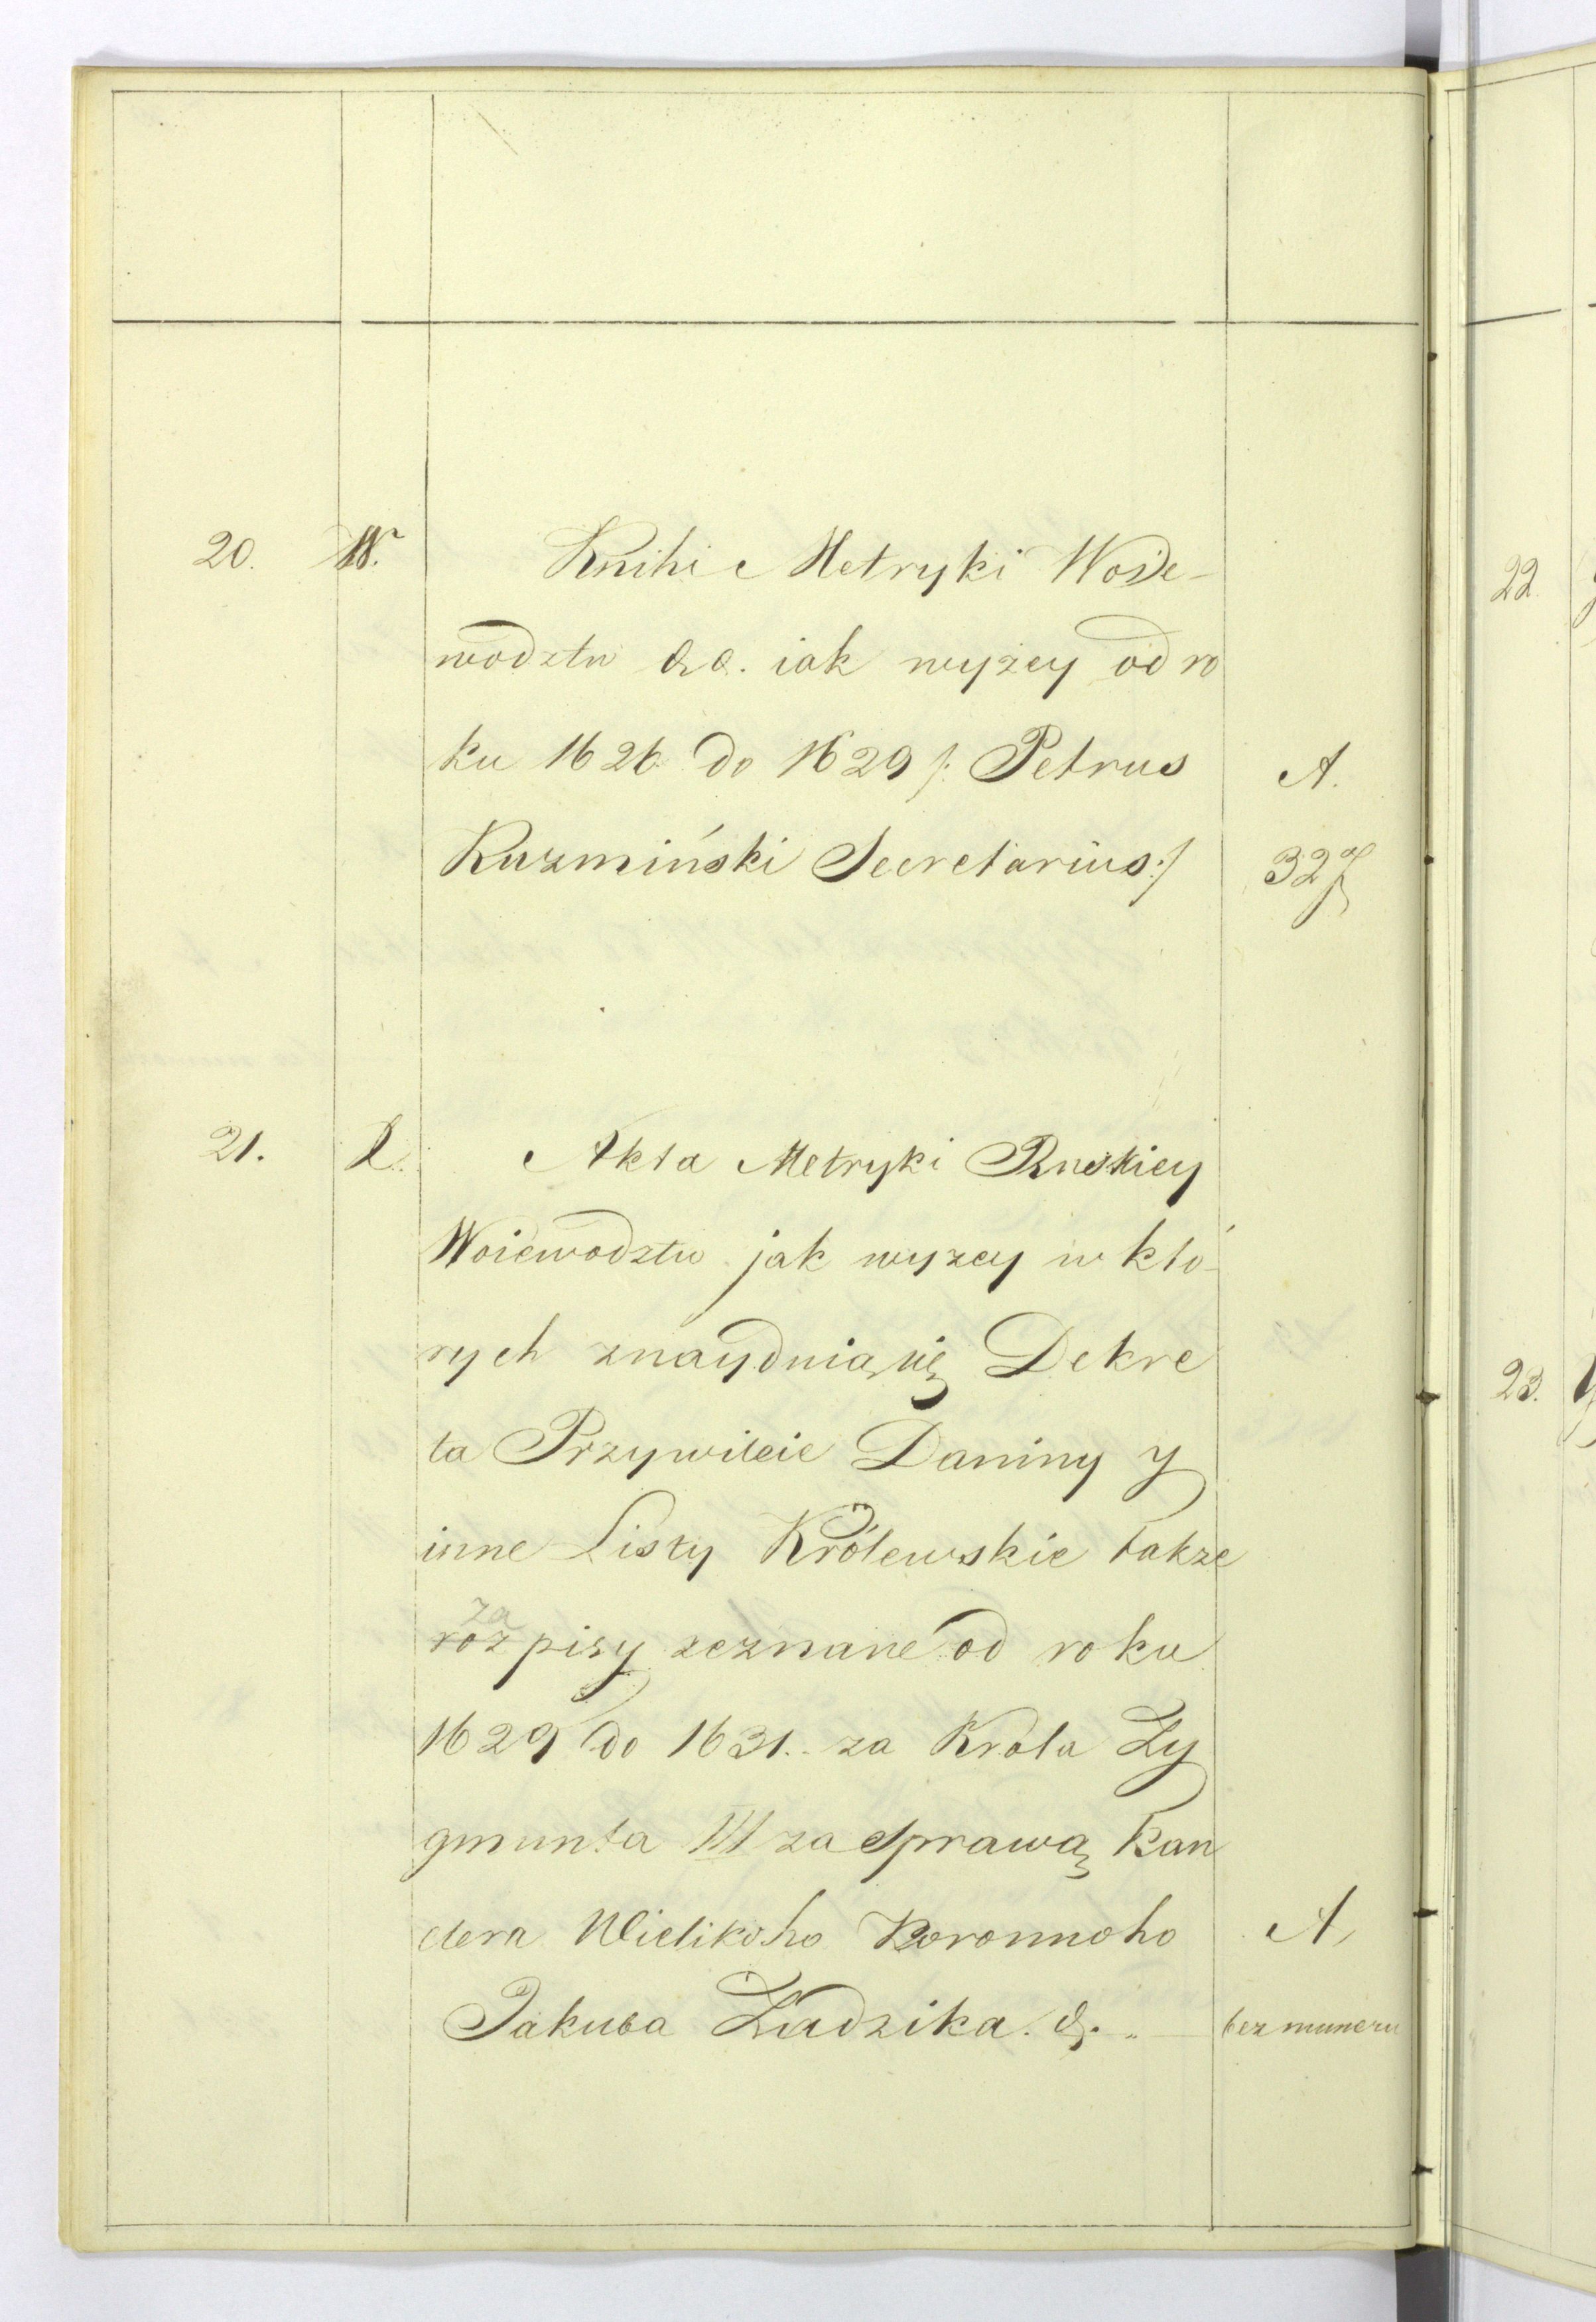 20. W. Knihi Metryki Woie-
wodztw &a. iak wyżey od ro
ku 1626 do 1629 /: Petrus A.
Kuzmiński Secretarius :/ 32
21. Akta Metryki Ruskiey
Woiewodztw jak wyzey w któ-
rych znayduią się Dekre
ta Przywileie Daniny y
inne Listy Królewskie takze
za
roz pisy zeznane od roku
1629 do 1631. za Krola Zy
gmunta III za sprawą Kan
clera Wielikoho Koronnoho A,
Jakuba Zadzika. &. bez numeru
22
23.